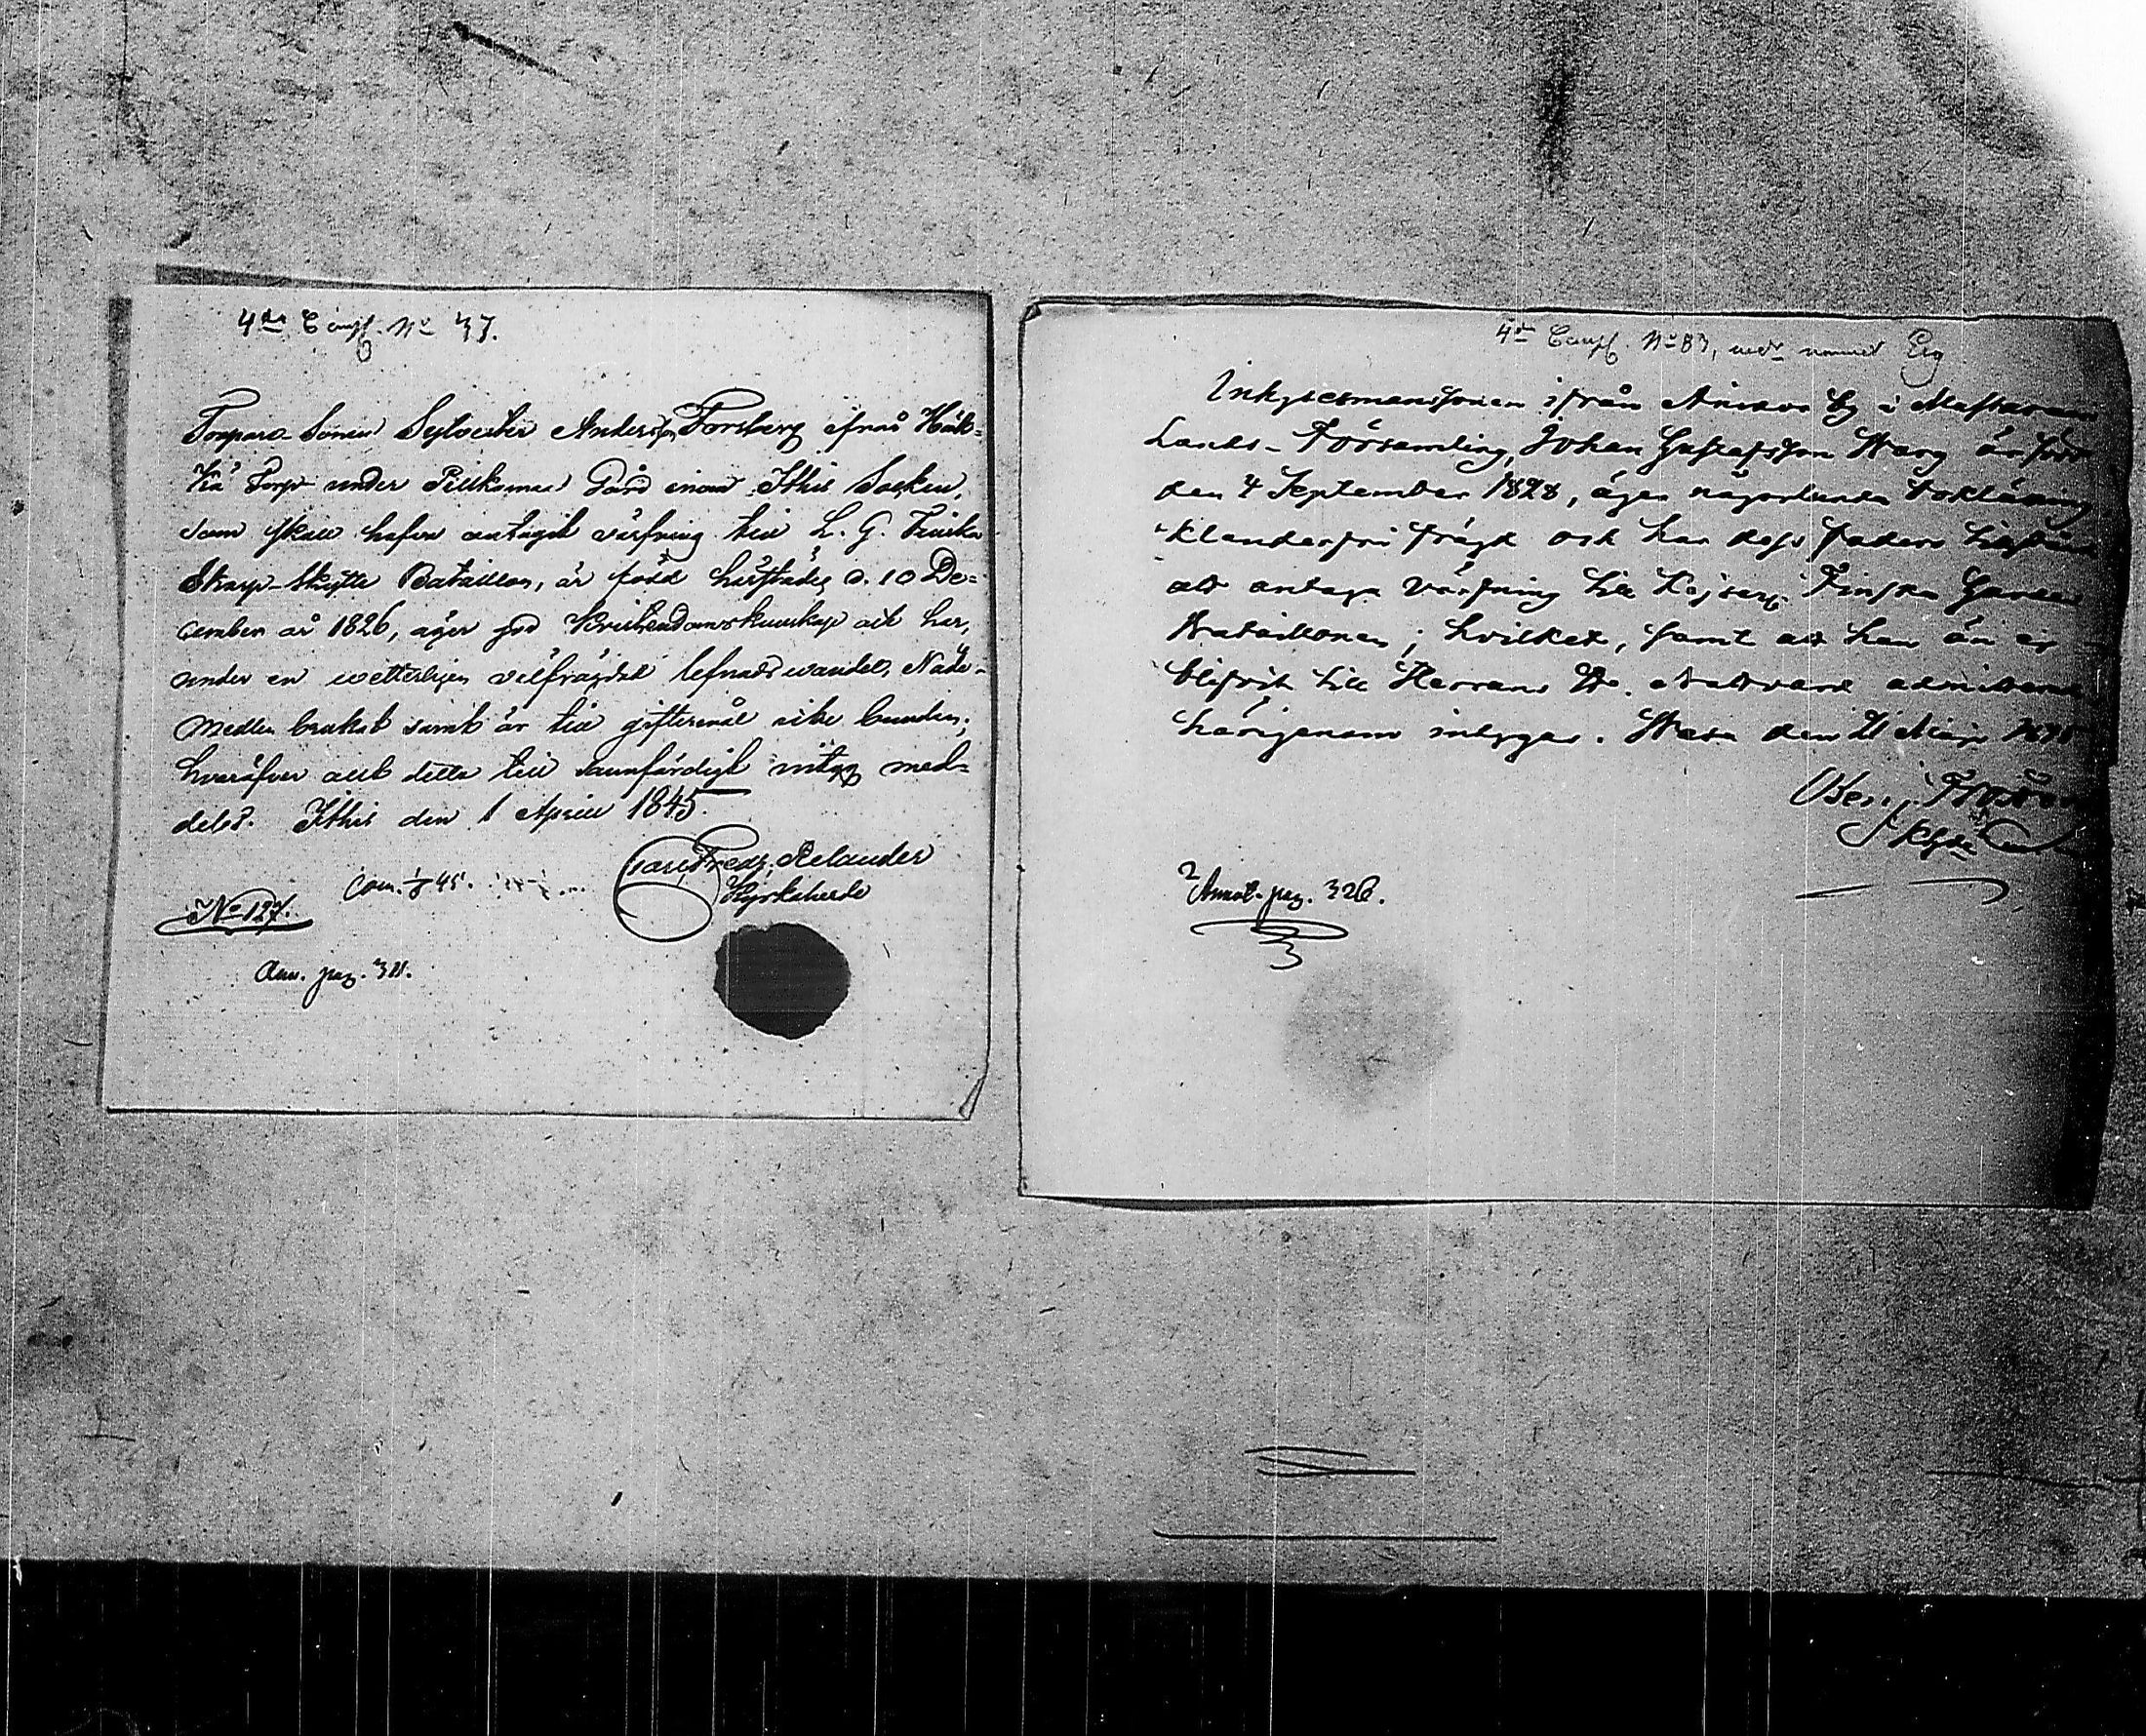 4de Comp. No 37.
Torpare-Sonen Sylvester Andersson Forsberg ifrån Häk-
kä Torp under Pilkamaa Gård inom Ithis Socken,
som skall hafva antagit värfning till L. G. Finska
Skarp-Skytte Bataillon, är född härstädes d. 10 De-
cember år 1826, äger god Kristendomskunskap och har,
under en wetterligen välfrägdad lefnadswandel, Nåde-
medlen brukat samt är till giftermål icke bunden;
hvaröfver allt detta till sannfärdigt intyg med-
delas. Ithis den 1 Aprill 1845.
Carl Fredr. Relander
Kyrkoherde
Com. 45.
No 127.
Ann. pag. 311.
4de Comp. No 83, med namnet Eig
Inhysesmanssonen ifrån by i Mustasaari
Lands-Församling, Johan Gustafsson Warg är född
den 4 September 1828, äger någorlunda boklärning
klanderfri frägd och har dess faders tillstånd
att antaga värfning till Kejserl. Finska Gardes
Bataillonen; hvilket, samt att han än ej
blifvit till Herrans H. Nattvard admitterad
härigenom intygas. Wasa den 21 Maji 1845
Benj.
Annot. pag. 326.